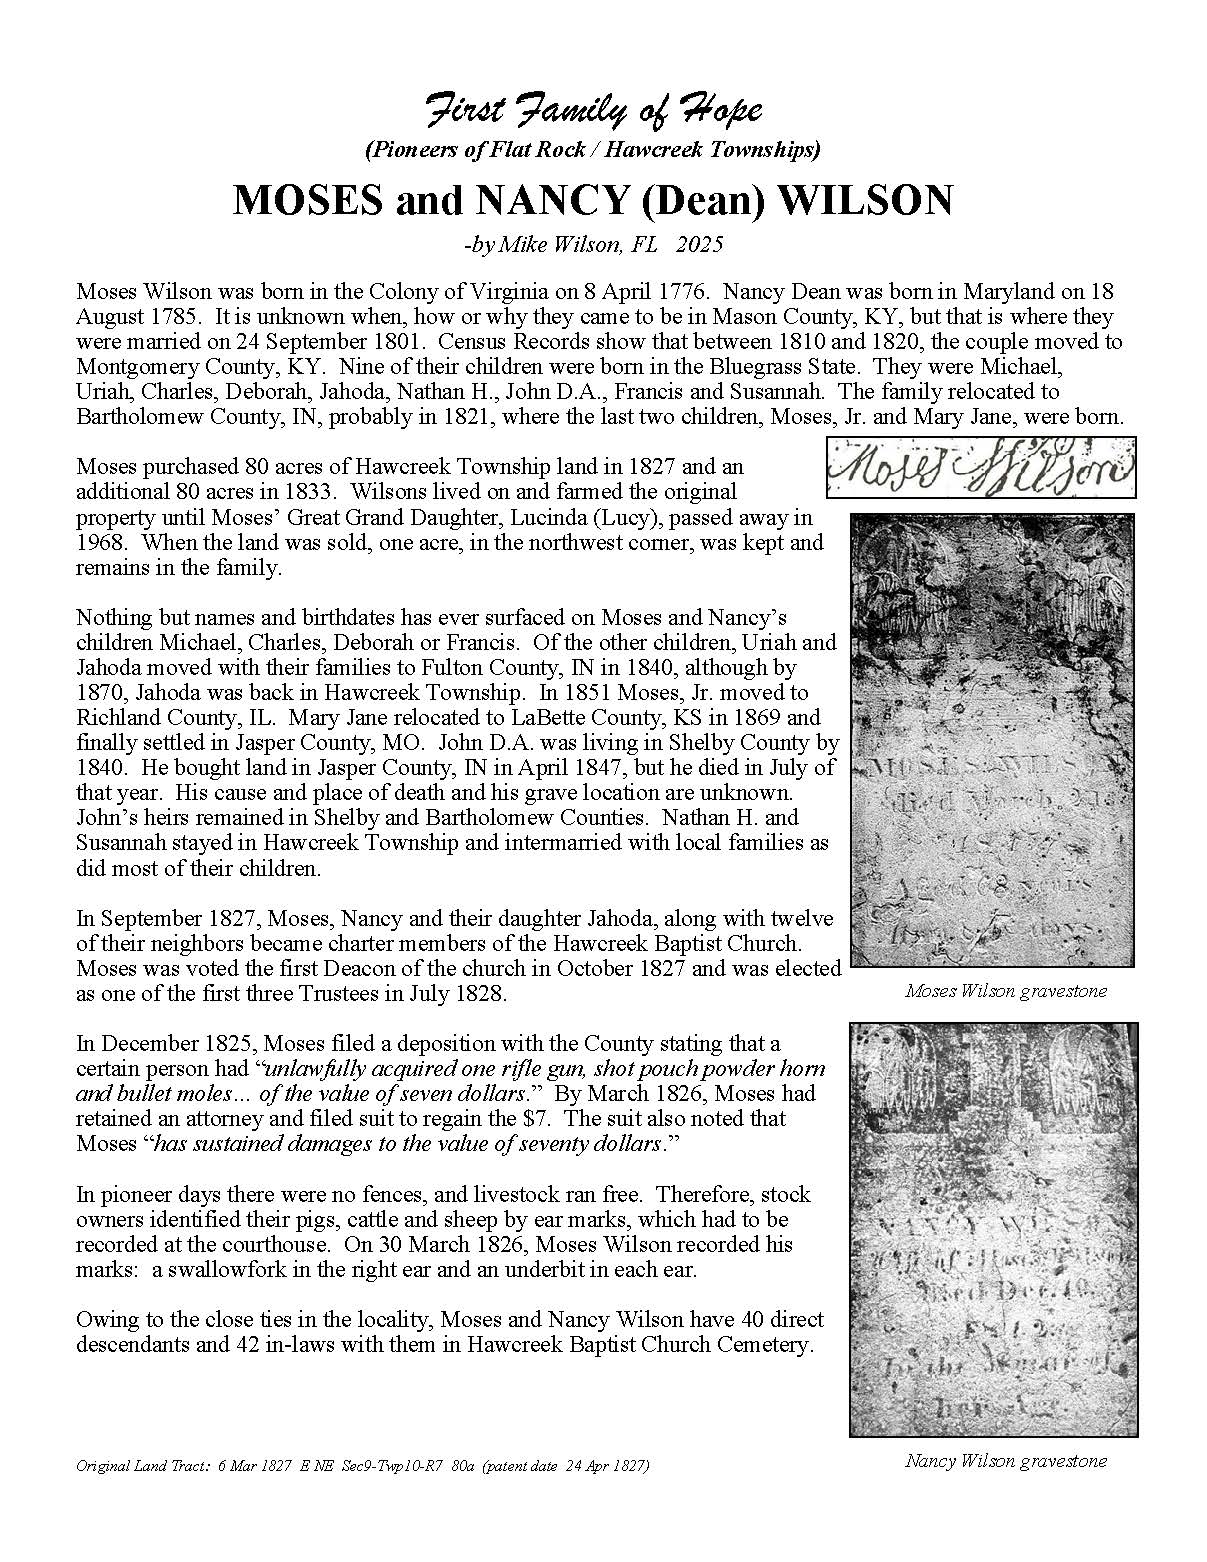 First Family of Hope
(Pioneers of Flat Rock / Hawcreek Townships)
MOSES and NANCY (Dean) WILSON
-by Mike Wilson, FL 2025
Moses Wilson was born in the Colony of Virginia on 8 April 1776. Nancy Dean was born in Maryland on 18
August 1785. It is unknown when, how or why they came to be in Mason County, KY, but that is where they
were married on 24 September 1801. Census Records show that between 1810 and 1820, the couple moved to
Montgomery County, KY. Nine of their children were born in the Bluegrass State. They were Michael,
Uriah, Charles, Deborah, Jahoda, Nathan H., John D.A., Francis and Susannah. The family relocated to
Bartholomew County, IN, probably in 1821, where the last two children, Moses, Jr. and Mary Jane, were born.
Moses Wilson
Moses purchased 80 acres of Hawcreek Township land in 1827 and an
additional 80 acres in 1833. Wilsons lived on and farmed the original
property until Moses’ Great Grand Daughter, Lucinda (Lucy), passed away in
1968. When the land was sold, one acre, in the northwest corner, was kept and
remains in the family.
Nothing but names and birthdates has ever surfaced on Moses and Nancy’s
children Michael, Charles, Deborah or Francis. Of the other children, Uriah and
Jahoda moved with their families to Fulton County, IN in 1840, although by
1870, Jahoda was back in Hawcreek Township. In 1851 Moses, Jr. moved to
Richland County, IL. Mary Jane relocated to LaBette County, KS in 1869 and
finally settled in Jasper County, MO. John D.A. was living in Shelby County by
1840. He bought land in Jasper County, IN in April 1847, but he died in July of
that year. His cause and place of death and his grave location are unknown.
John’s heirs remained in Shelby and Bartholomew Counties. Nathan H. and
Susannah stayed in Hawcreek Township and intermarried with local families as
did most of their children.
In September 1827, Moses, Nancy and their daughter Jahoda, along with twelve
of their neighbors became charter members of the Hawcreek Baptist Church.
Moses was voted the first Deacon of the church in October 1827 and was elected
as one of the first three Trustees in July 1828.
MOSES WILSO
Died March
Aged 68 years
days.
Moses Wilson gravestone
In December 1825, Moses filed a deposition with the County stating that a
certain person had “unlawfully acquired one rifle gun, shot pouch powder horn
and bullet moles… of the value of seven dollars.” By March 1826, Moses had
retained an attorney and filed suit to regain the $7. The suit also noted that
Moses “has sustained damages to the value of seventy dollars.”
In pioneer days there were no fences, and livestock ran free. Therefore, stock
owners identified their pigs, cattle and sheep by ear marks, which had to be
recorded at the courthouse. On 30 March 1826, Moses Wilson recorded his
marks: a swallowfork in the right ear and an underbit in each ear.
Owing to the close ties in the locality, Moses and Nancy Wilson have 40 direct
descendants and 42 in-laws with them in Hawcreek Baptist Church Cemetery.
NANCY
Wife of Moses Wilson
Died Dec. 10
In the
her age.
Nancy Wilson gravestone
Original Land Tract: 6 Mar 1827 E NE Sec9-Twp10-R7 80a (patent date 24 Apr 1827)